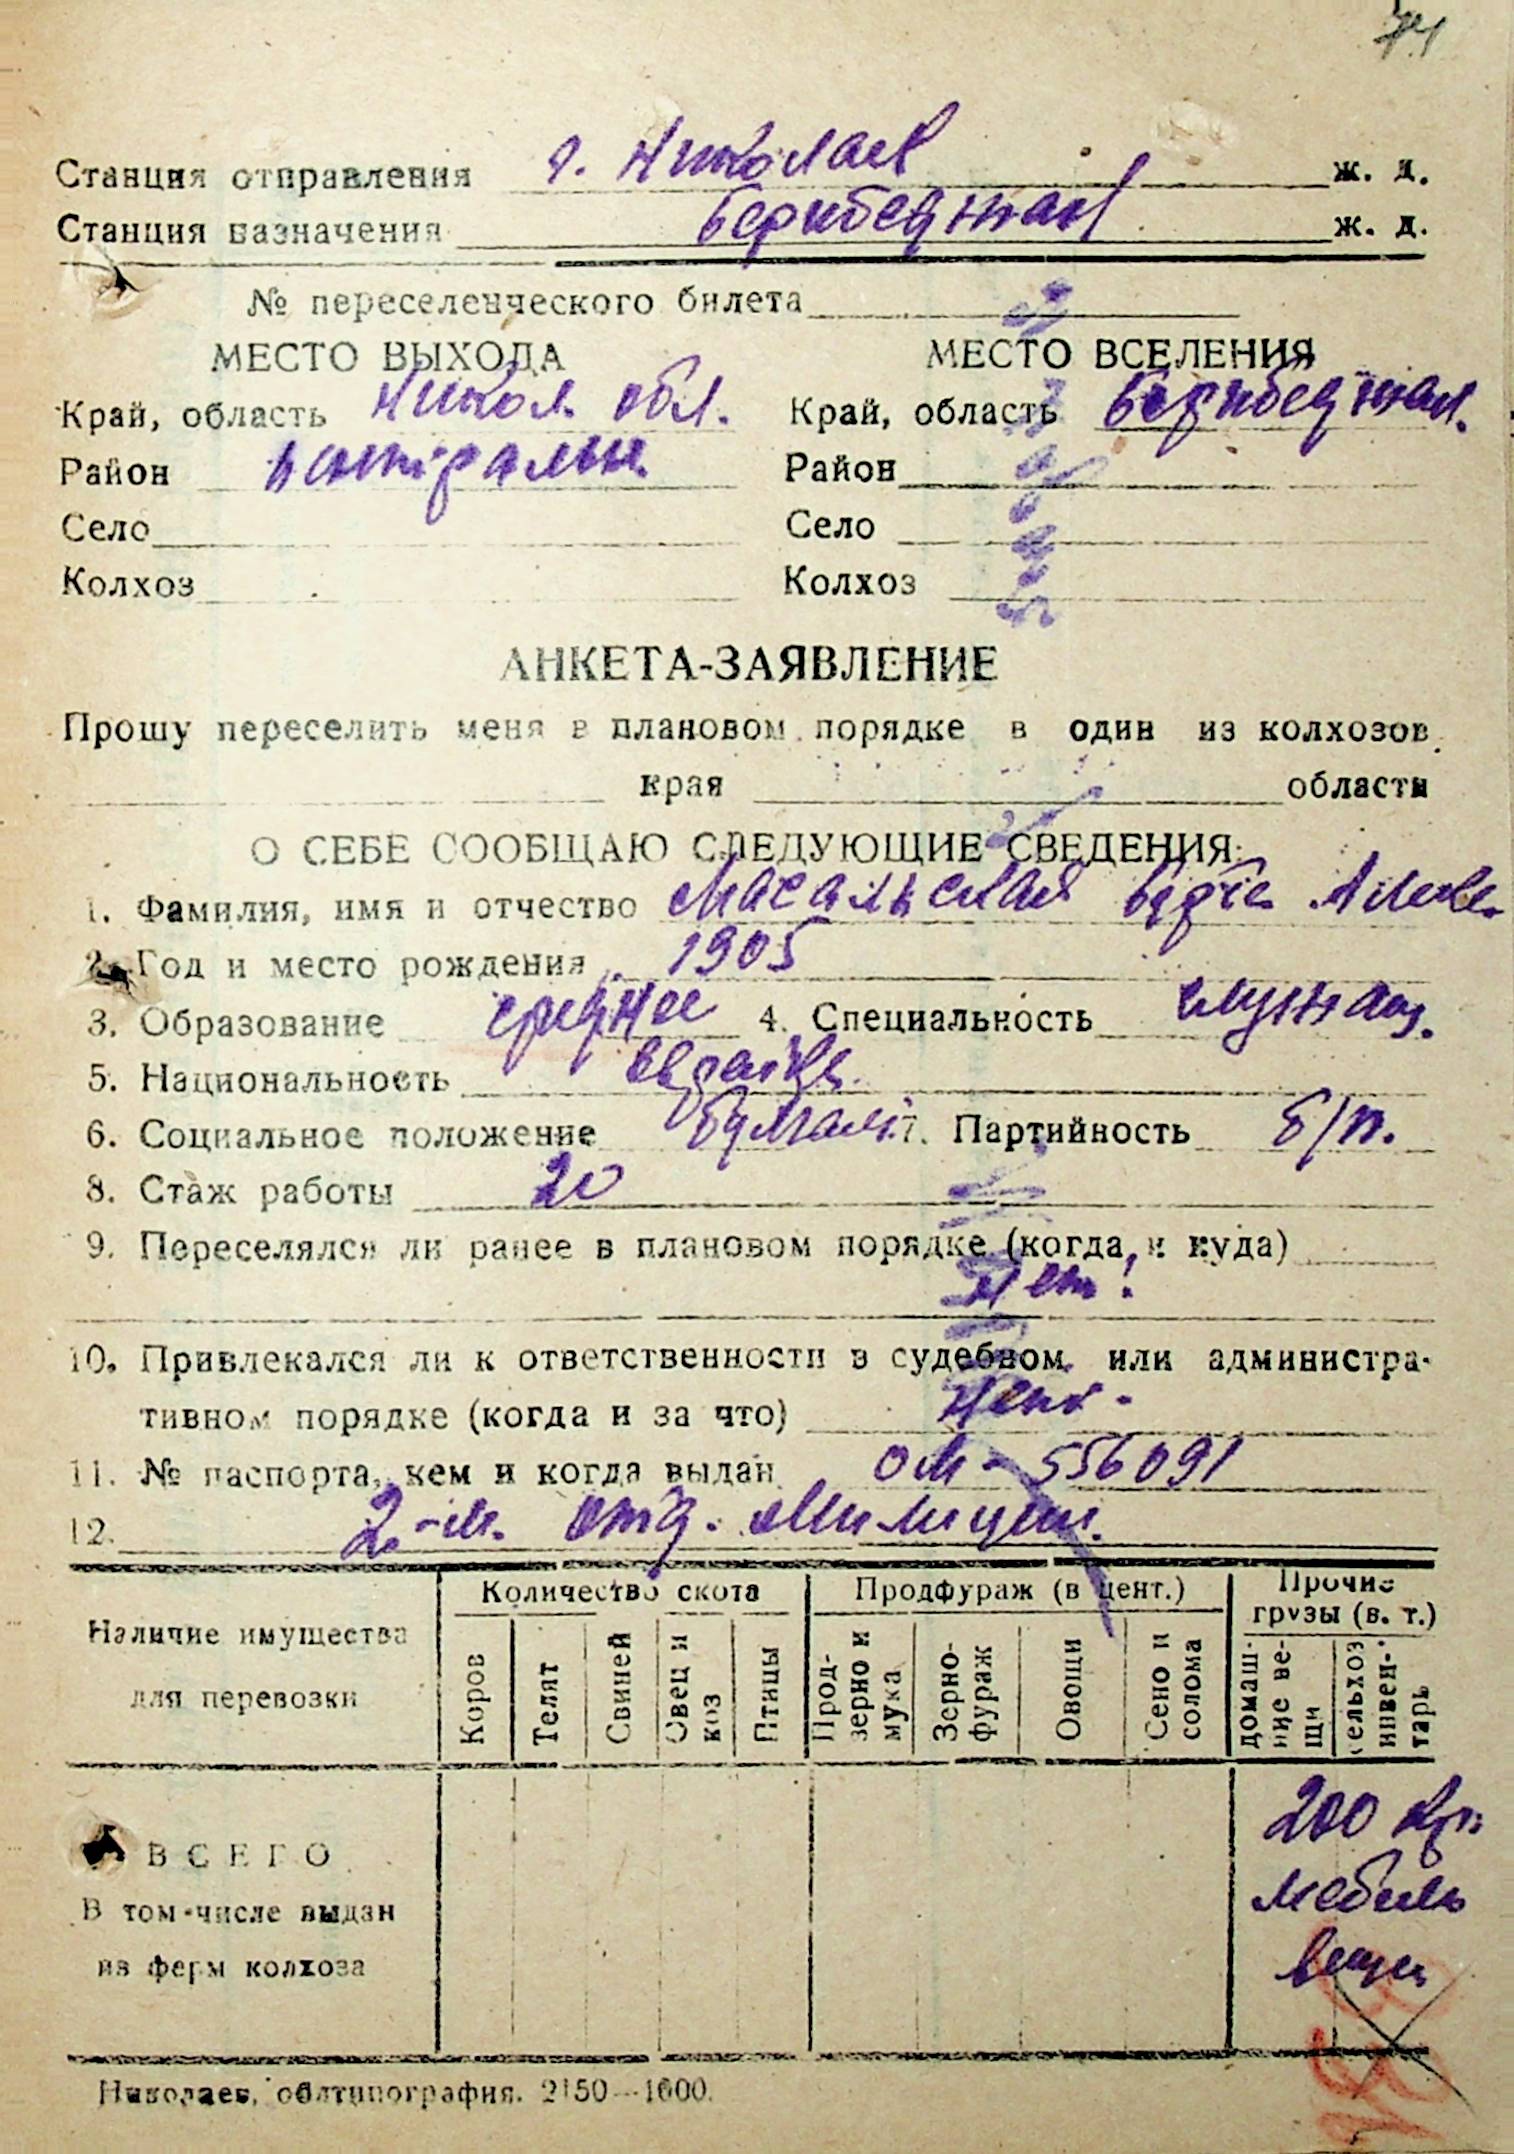 74
Станция отправления г. Николаев ж. д.
Станция назначения Берибеджан ж. д.
№ переселенческого билета
МЕСТО ВЫХОДА МЕСТО ВСЕЛЕНИЯ
Край, область Никол. обл. Край, область Берибеджан.
Район Централн. Район
Село Село
Колхоз Колхоз
АНКЕТА-ЗАЯВЛЕНИЕ
Прошу переселить меня в плановом порядке в один из колхозов
края области
О СЕБЕ СООБЩАЮ СЛЕДУЮЩИЕ СВЕДЕНИЯ:
1. Фамилия, имя и отчество Масальская
2. Год и место рождения 1905
3. Образование среднее 4. Специальность служащ.
5. Национальность
6. Социальное положение 7. Партийность б/п.
8. Стаж работы 20
9. Переселялся ли ранее в плановом порядке (когда и куда)
Нет!
10. Привлекался ли к ответственности в судебном или администра-
тивном порядке (когда и за что) Нет -
11. № паспорта, кем и когда выдан ОМ - 556091
12. 2-м. отд. Милиции.
Наличие имущества для перевозки
Количество скота Продфураж (в цент.) Прочие грузы (в. т.)
Коров Телят Свиней Овец и коз Птицы Прод-зерно и мука Зерно-фураж Овощи Сено и солома домаш-ние ве-щи сельхоз инвен-тарь
ВСЕГО 200 кг.
В том-числе выдан мебель
из ферм колхоза вещи
Николаев, облтипография. 2150—1600.